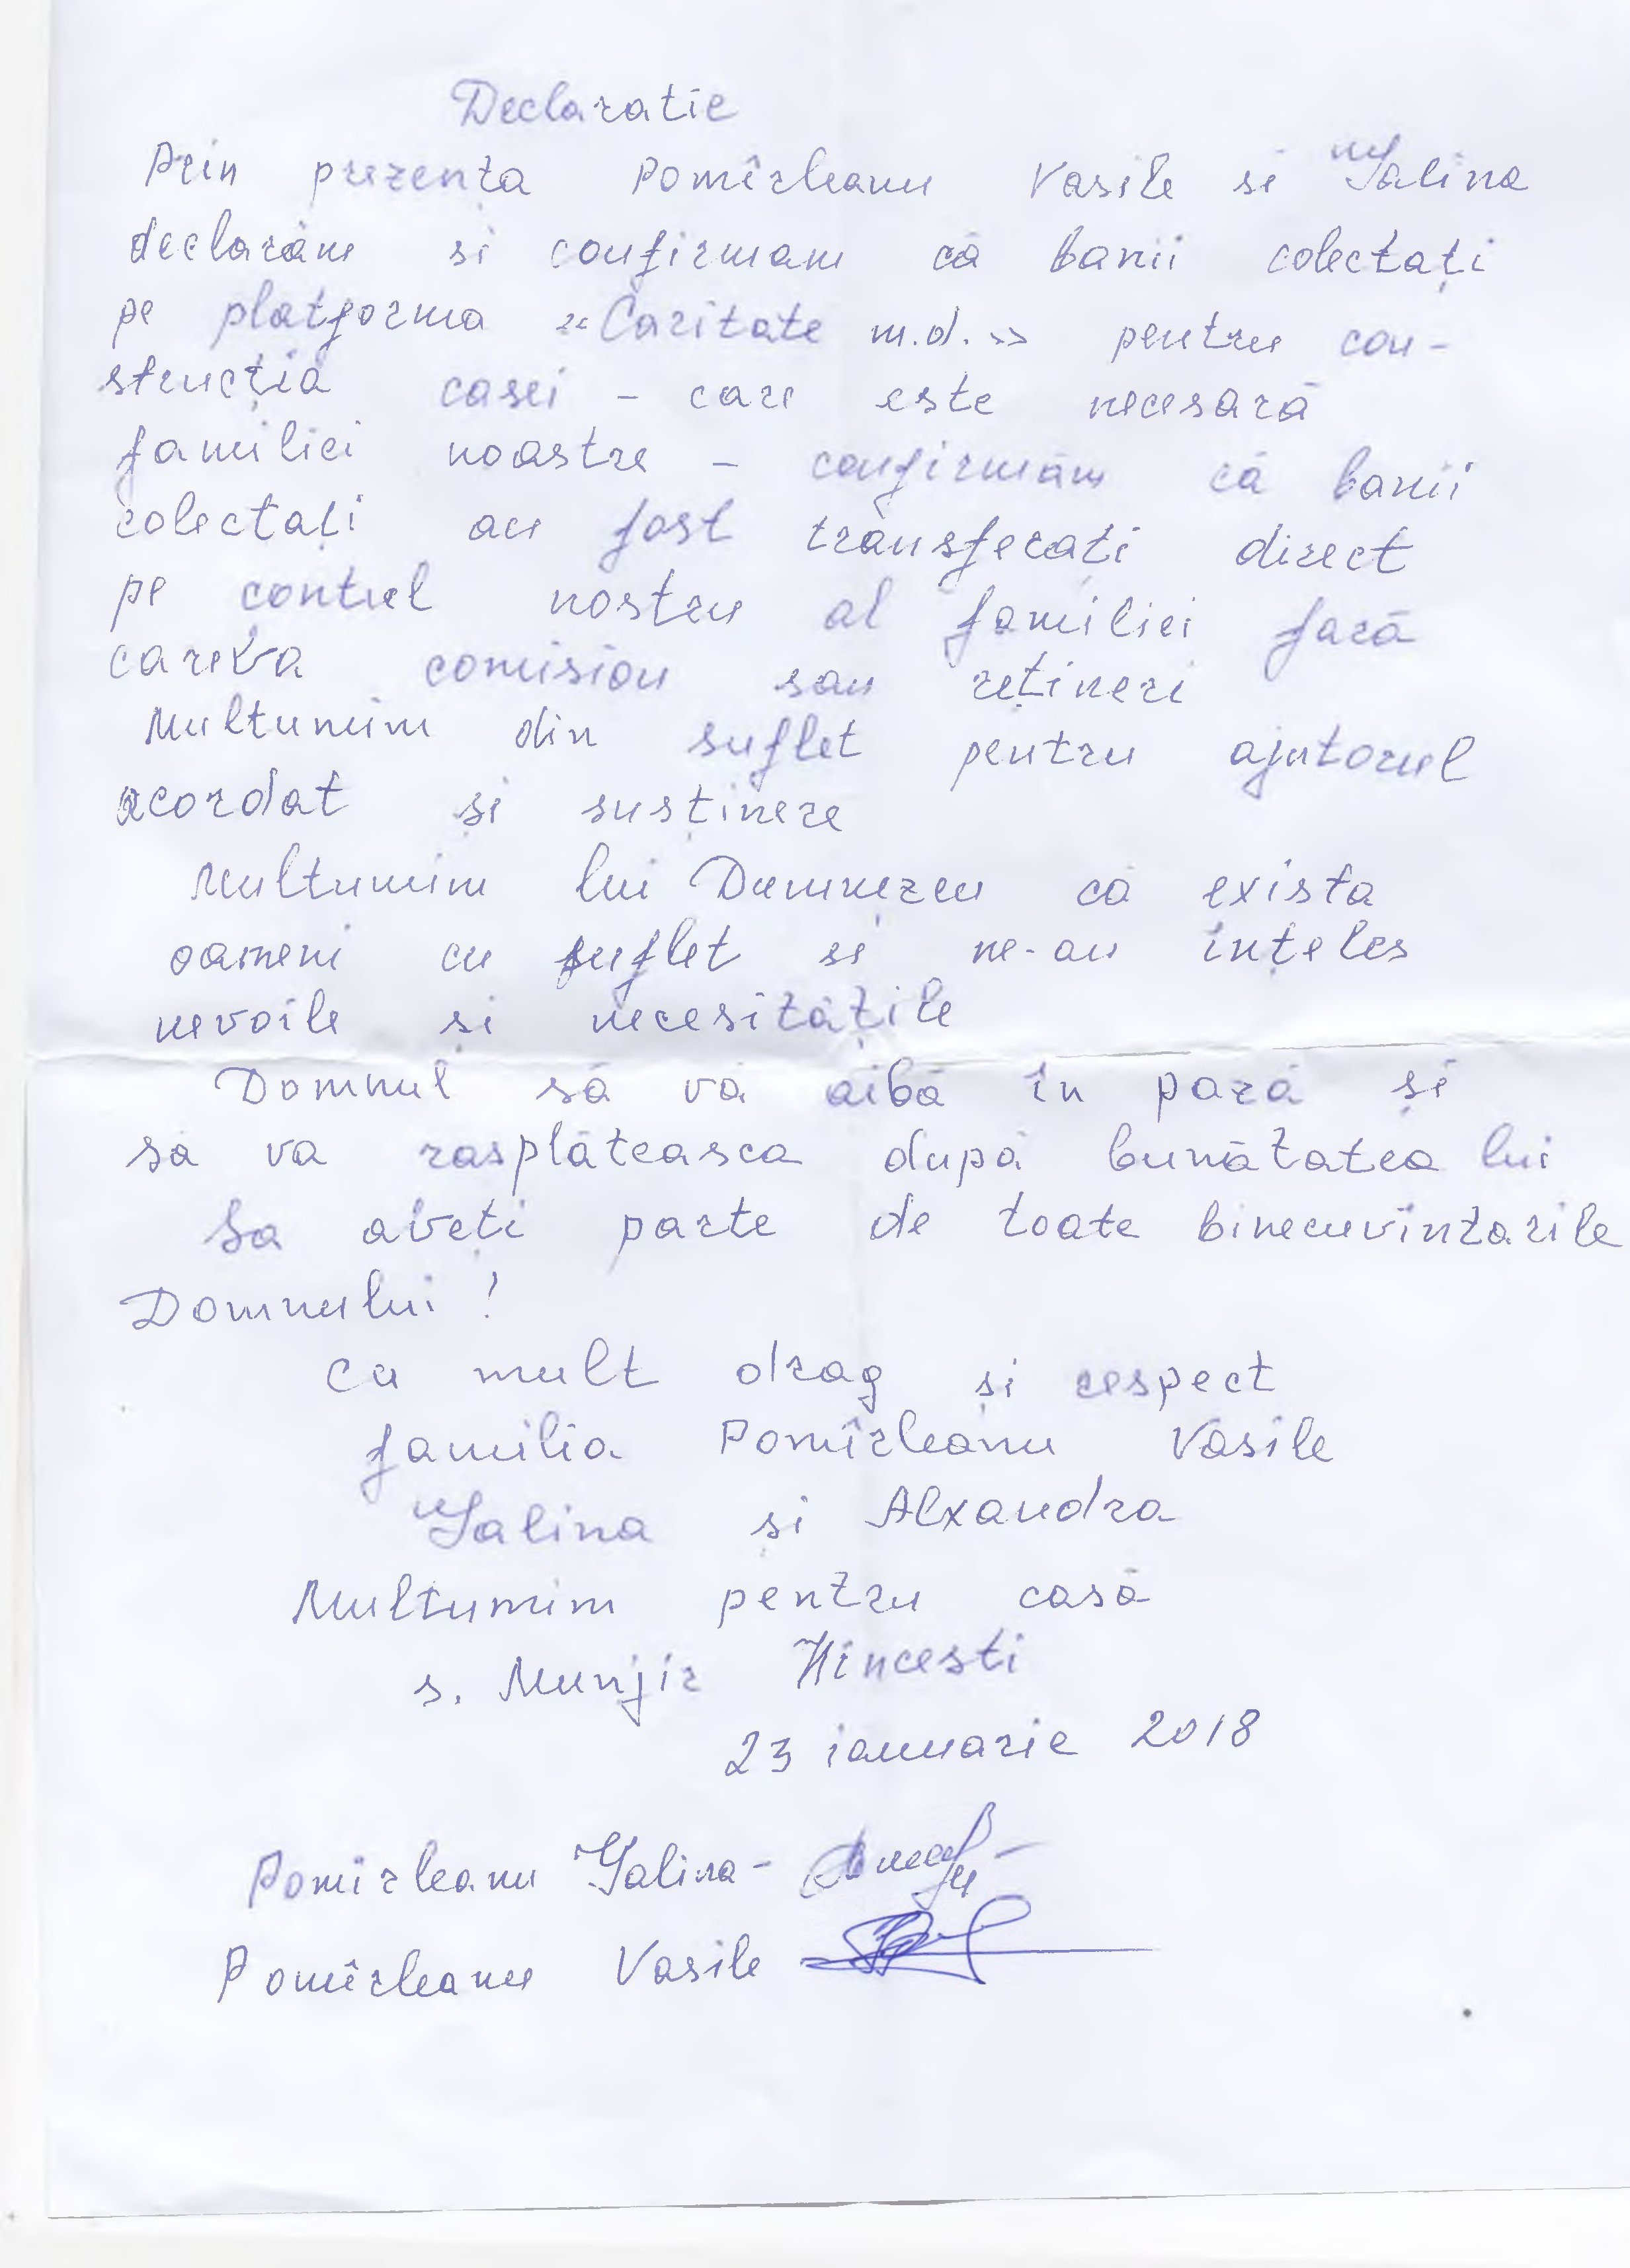 Declaratie
Prin prezența Pomîrleanu Vasile si Galina
declarăm si confirmam că banii colectați
pe platforma «Caritate m.d.» pentru con-
strucția casei – care este necesară
familiei noastre – confirmăm că banii
colectați au fost transferați direct
pe contul nostru al familiei fară
careva comision sau rețineri
Multumim din suflet pentru ajutorul
acordat și susținere
Multumim lui Dumnezeu că exista
oameni cu suflet si ne-au ințeles
nevoile și necesitățile
Domnul să vă aibă în pază și
să va rasplăteasca după bunătatea lui
Sa aveți parte de toate binecuvîntarile
Domnului!
Cu mult drag și respect
familia Pomîrleanu Vasile
Galina și Alxandra
Multumim pentru casă
s. Munjir Hincesti
23 ianuarie 2018
Pomirleanu Galina -
Pomîrleanu Vasile